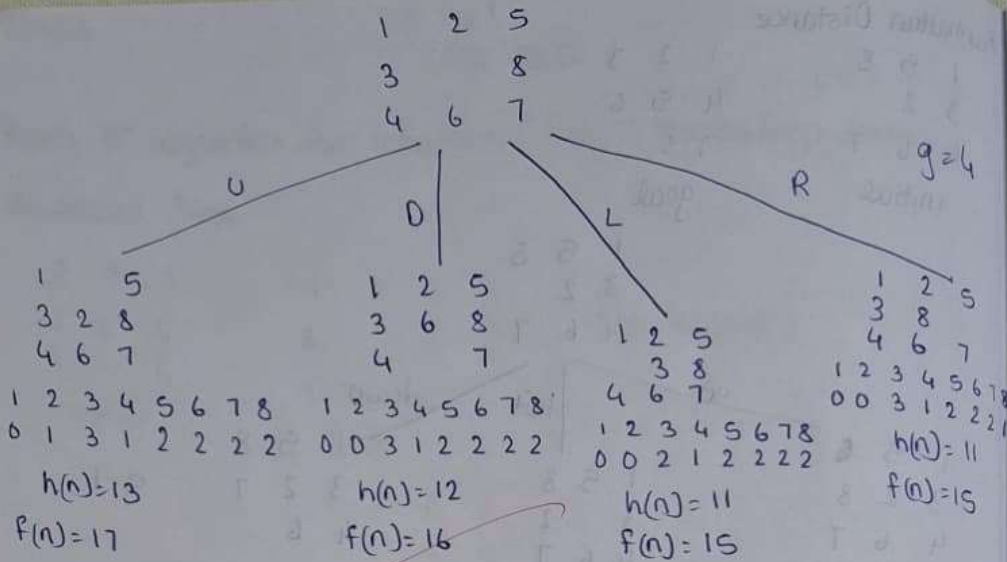 1 2 5
3 8
4 6 7
g=4
U
D
L
R
1 5
3 2 8
4 6 7
1 2 3 4 5 6 7 8
0 1 3 1 2 2 2 2
h(n)=13
f(n)=17
1 2 5
3 6 8
4 7
1 2 3 4 5 6 7 8
0 0 3 1 2 2 2 2
h(n)=12
f(n)=16
1 2 5
3 8
4 6 7
1 2 3 4 5 6 7 8
0 0 2 1 2 2 2 2
h(n)=11
f(n)=15
1 2 5
3 8
4 6 7
1 2 3 4 5 6 7 8
0 0 3 1 2 2 2 1
h(n)=11
f(n)=15